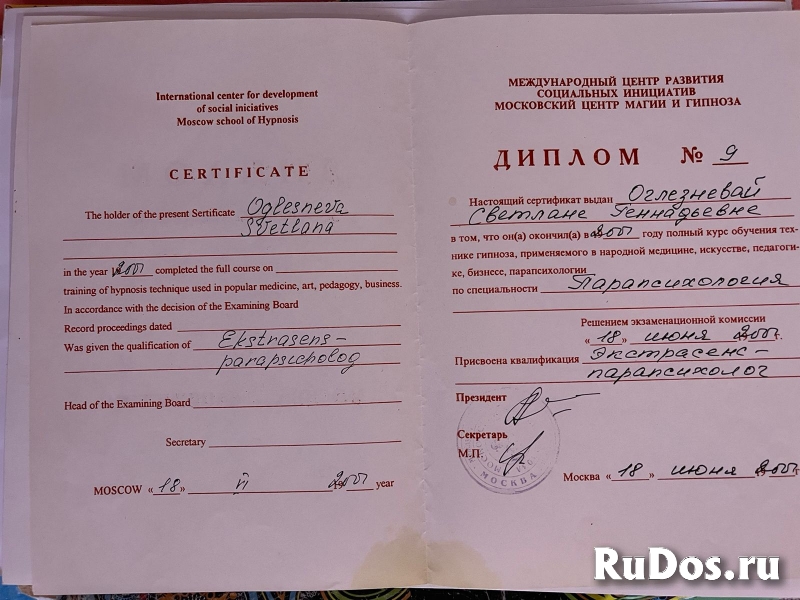 International center for development
of social iniciatives
Moscow school of Hypnosis
CERTIFICATE
The holder of the present Sertificate Oglesneva
SVetlana
in the year 2001 completed the full course on
training of hypnosis technique used in popular medicine, art, pedagogy, business.
In accordance with the decision of the Examining Board
Record proceedings dated
Was given the qualification of Ekstrasens-
parapsicholog
Head of the Examining Board
Secretary
MOSCOW «18» VI 2001 year
МЕЖДУНАРОДНЫЙ ЦЕНТР РАЗВИТИЯ
СОЦИАЛЬНЫХ ИНИЦИАТИВ
МОСКОВСКИЙ ЦЕНТР МАГИИ И ГИПНОЗА
ДИПЛОМ № 9
Настоящий сертификат выдан Оглезневай
Светлане Геннадьевне
в том, что он(а) окончил(а) в 2001 году полный курс обучения тех-
нике гипноза, применяемого в народной медицине, искусстве, педагоги-
ке, бизнесе, парапсихологии
по специальности Парапсихология
Решением экзаменационной комиссии
«18» июня 2001
Присвоена квалификация Экстрасенс-
парапсихолог
Президент
Секретарь
М.П.
МОСКВА
Москва «18» июня 2001 г.
RuDos.ru